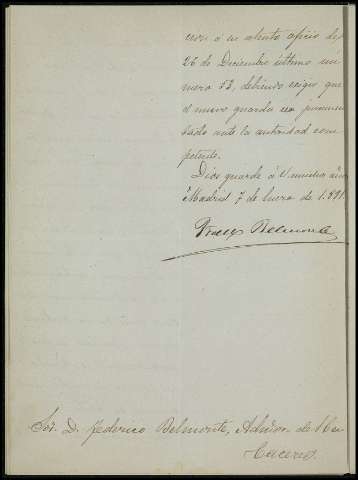 cion a su atento oficio de
26 de Diciembre último nú
mero 53, debiendo exigir que
el nuevo guarda sea juramen
tado ante la autoridad com
petente.
Dios guarde á V. muchos años
Madrid 7 de Enero de 1.891.
Belmonte
Sor. D. Federico Belmonte, Admor. de
Caceres.